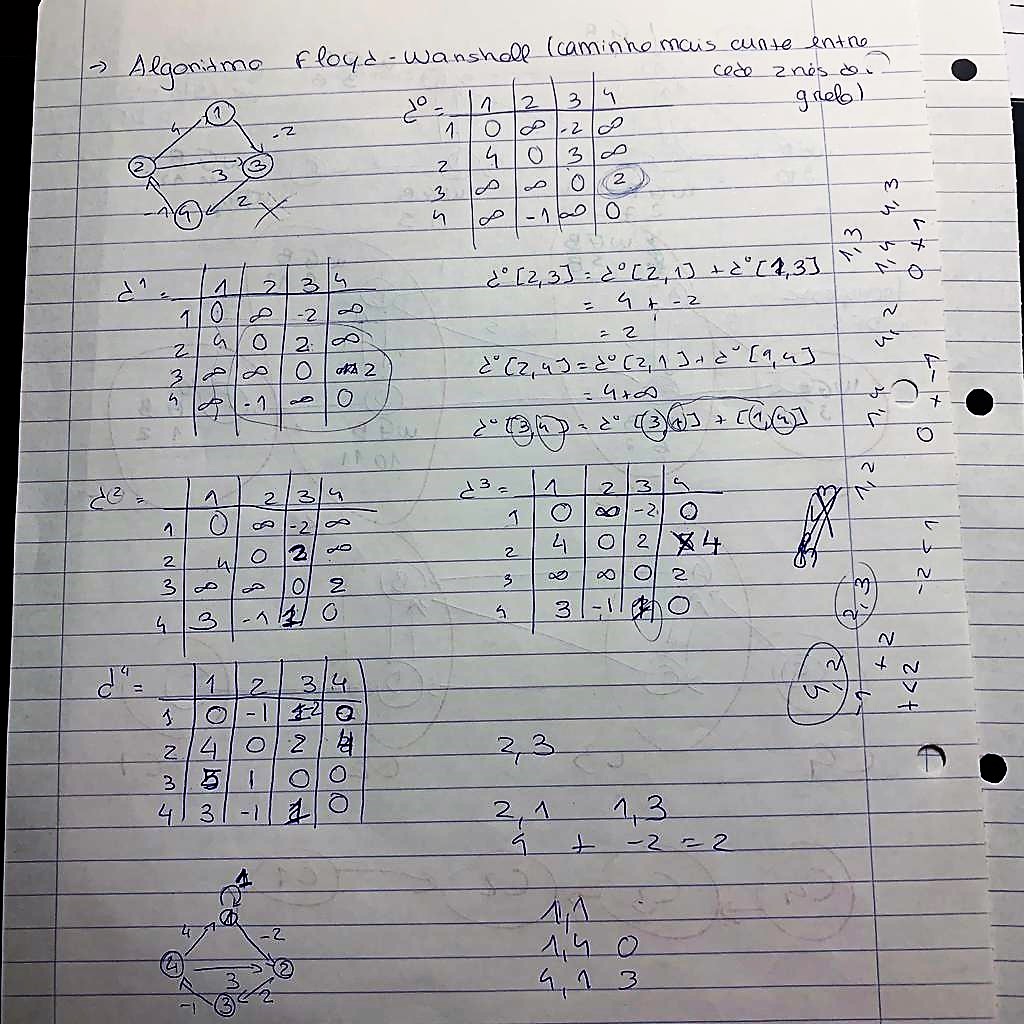 → Algoritmo Floyd-Warshall (caminho mais curto entre
cada 2 nós do
grafo)
1
4 -2
2 3 3
-1 4 2
d⁰= 1 2 3 4
1 0 ∞ -2 ∞
2 4 0 3 ∞
3 ∞ ∞ 0 2
4 ∞ -1 ∞ 0
d¹= 1 2 3 4
1 0 ∞ -2 ∞
2 4 0 2 ∞
3 ∞ ∞ 0 2
4 ∞ -1 ∞ 0
d⁰[2,3] = d⁰[2,1] + d⁰[1,3]
= 4 + -2
= 2
d⁰[2,4] = d⁰[2,1] + d⁰[1,4]
= 4+∞
d⁰[3,4] = d⁰[3,1] + [1,4]
d²= 1 2 3 4
1 0 ∞ -2 ∞
2 4 0 2 ∞
3 ∞ ∞ 0 2
4 3 -1 1 0
d³= 1 2 3 4
1 0 ∞ -2 0
2 4 0 2 4
3 ∞ ∞ 0 2
4 3 -1 1 0
d⁴= 1 2 3 4
1 0 -1 -2 0
2 4 0 2 4
3 5 1 0 0
4 3 -1 1 0
2,3
2,1 1,3
4 + -2 = 2
1
1
4 -2
4 3 2
-1 3 2
1,1
1,4 0
4,1 3
1,3
1,4 4,3
0 + 1
4,2
1,4
0 + -1
1,2
-2 < 1
2,3
4,2
-1 + 2
1 < 2